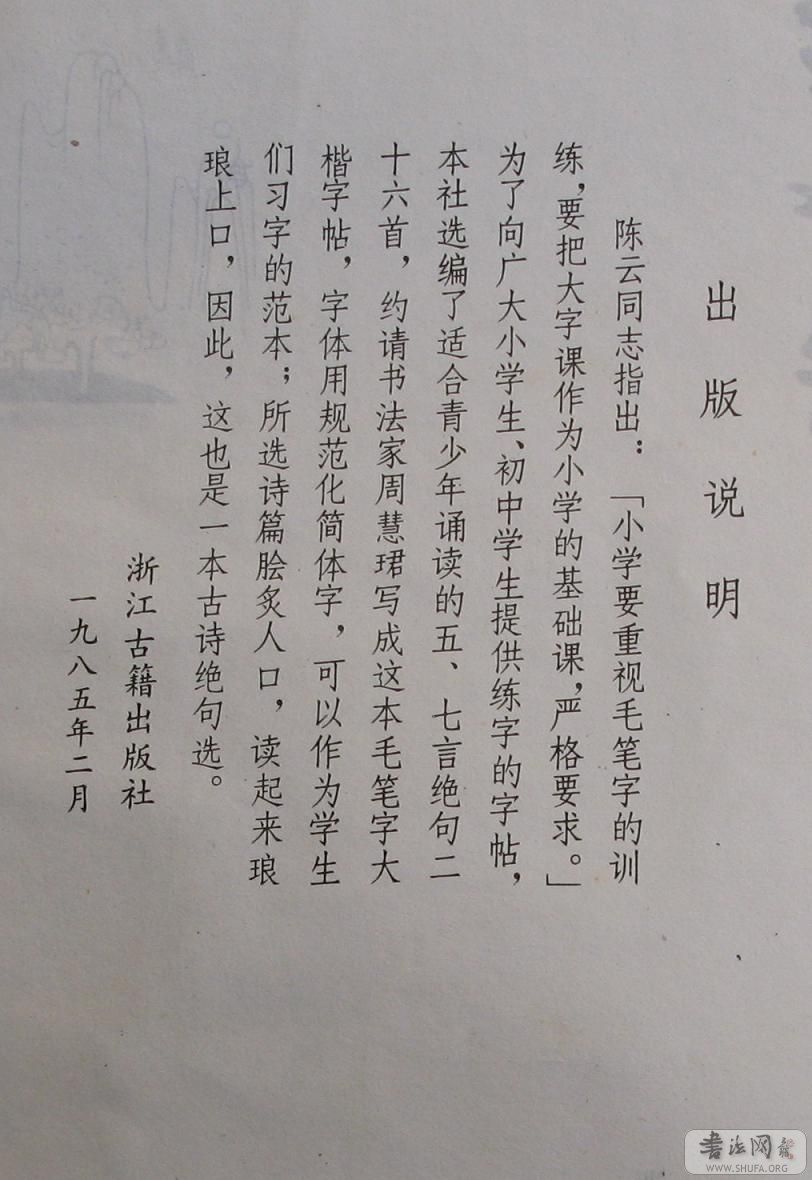 出版说明
陈云同志指出：「小学要重视毛笔字的训
练，要把大字课作为小学的基础课，严格要求。」
为了向广大小学生、初中学生提供练字的字帖，
本社选编了适合青少年诵读的五、七言绝句二
十六首，约请书法家周慧珺写成这本毛笔字大
楷字帖，字体用规范化简体字，可以作为学生
们习字的范本；所选诗篇脍炙人口，读起来琅
琅上口，因此，这也是一本古诗绝句选。
浙江古籍出版社
一九八五年二月
书法网
WWW.SHUFA.ORG